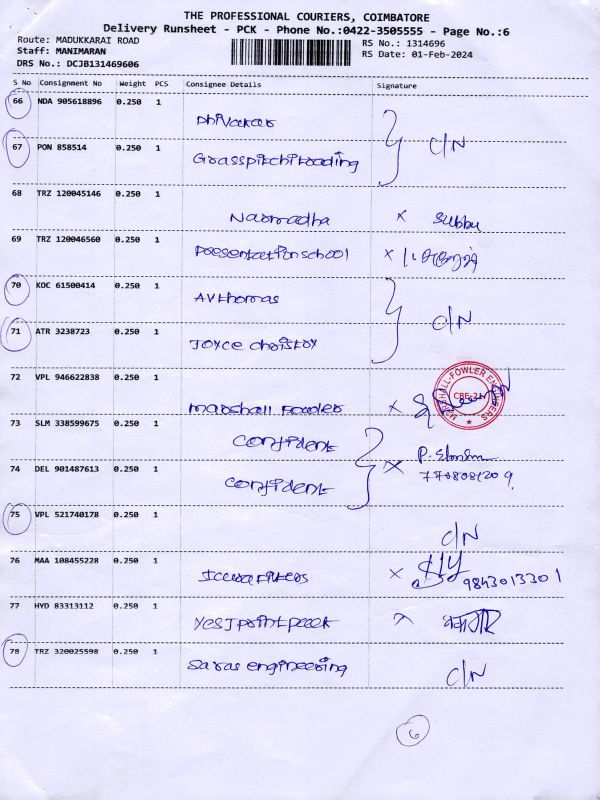 THE PROFESSIONAL COURIERS, COIMBATORE
Delivery Runsheet - PCK - Phone No.:0422-3505555 - Page No.:6
Route: MADUKKARAI ROAD RS No.: 1314696
Staff: MANIMARAN RS Date: 01-Feb-2024
DRS No.: DCJB131469606
S No Consignment No Weight PCS Consignee Details Signature
66 NDA 905618896 0.250 1
Dhivakar
67 PON 858514 0.250 1 C/N
68 TRZ 120045146 0.250 1
Narmadha x Subbu
69 TRZ 120046560 0.250 1
Presentation school x
70 KOC 61500414 0.250 1
AV thomas C/N
71 ATR 3238723 0.250 1
Joyce christoy
72 VPL 946622838 0.250 1
MARSHALL-FOWLER ENGINEERS
CBE-21
Marshall Fowler x
73 SLM 338599675 0.250 1
Confident P.
74 DEL 901487613 0.250 1 x
Confident
75 VPL 521740178 0.250 1
C/N
76 MAA 108455228 0.250 1
x 9843013301
77 HYD 83313112 0.250 1
Yes J print pack x
78 TRZ 320025598 0.250 1
Saras engineering C/N
6